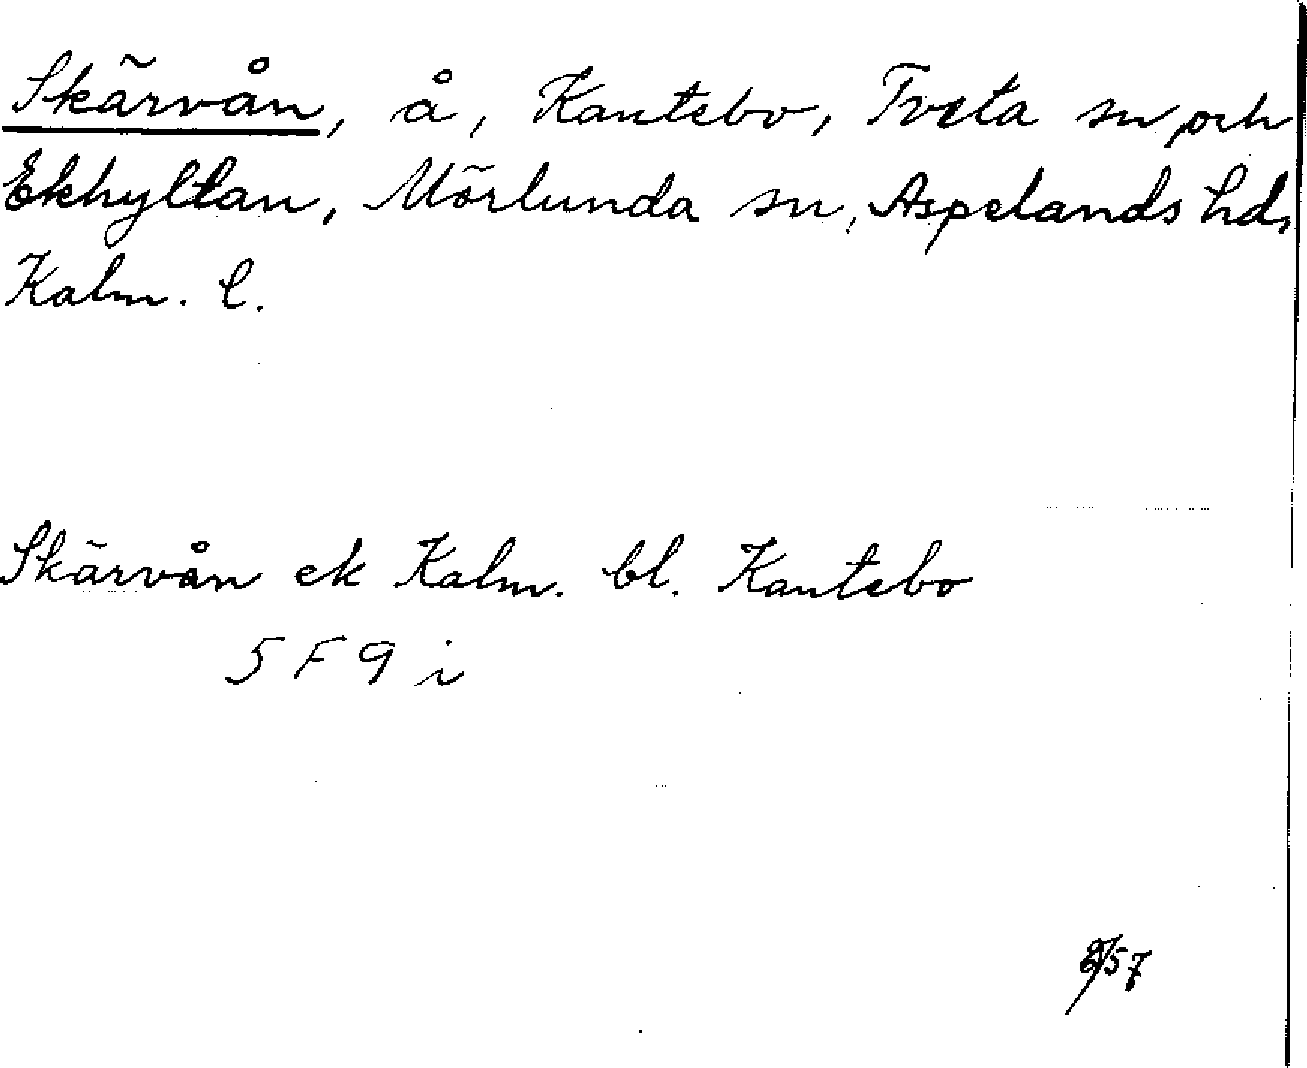 Skärvån, å, Kantebo, Tveta sn och
Ekhyltan, Mörlunda sn, Aspelands hd,
Kalm. l.
Skärvån ek Kalm. bl. Kantebo
5 F 9 i